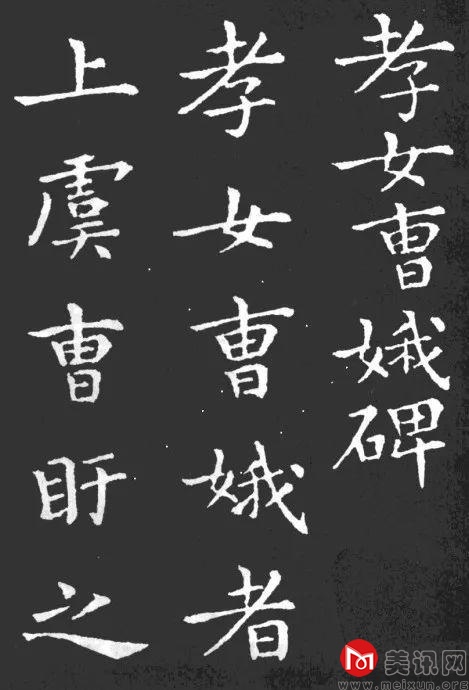 孝女曹娥碑
孝女曹娥者
上虞曹盱之
美讯网
www.meixun.org